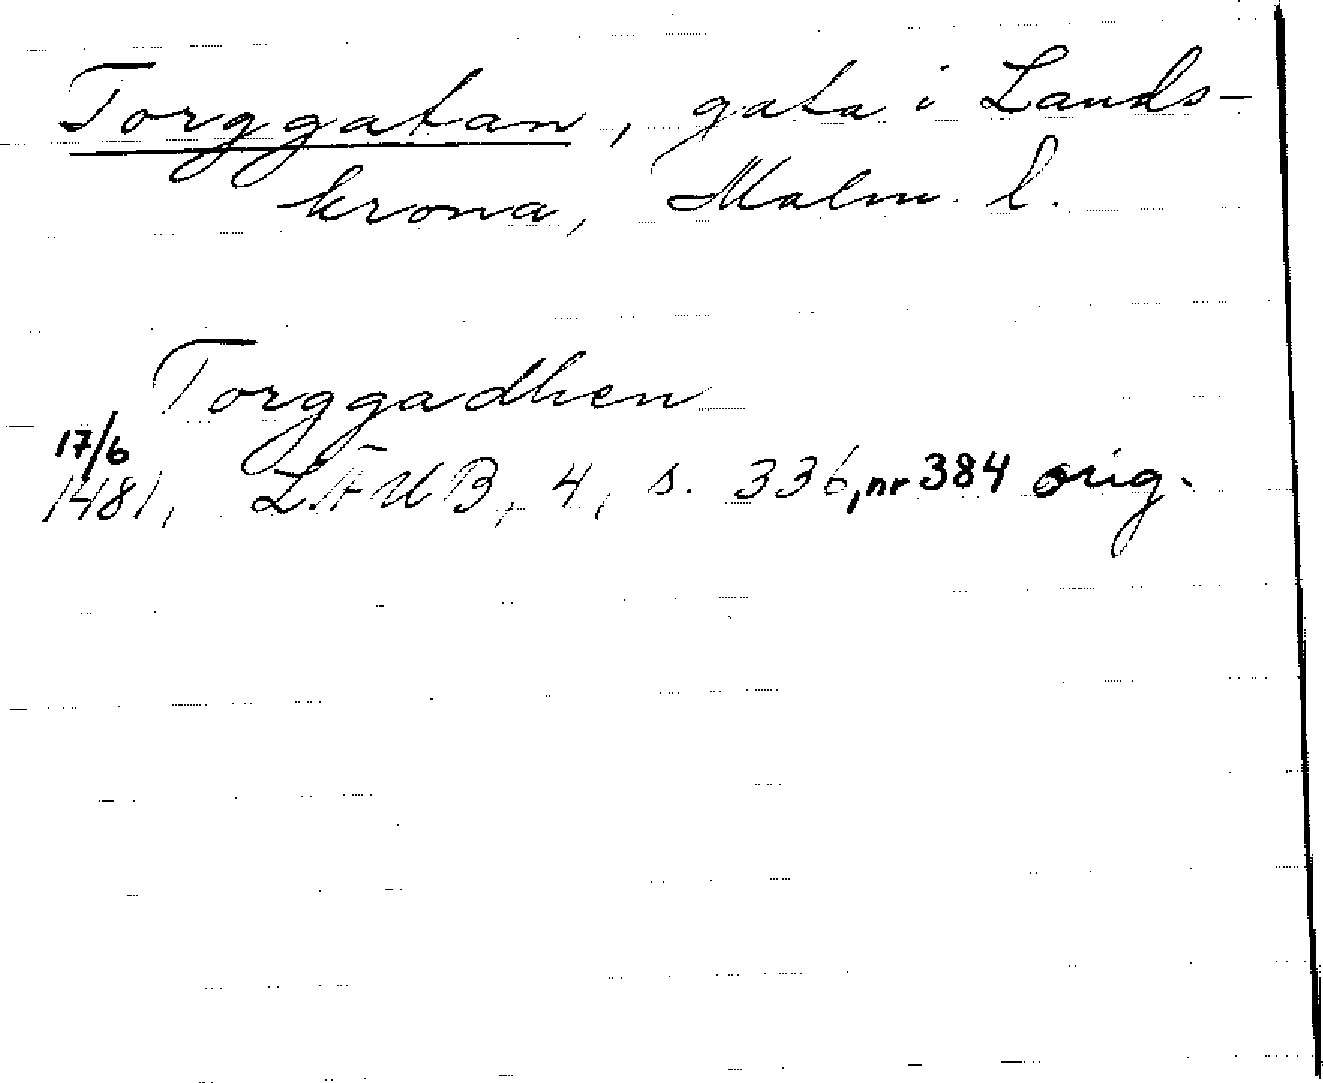 Torggatan, gata i Lands-
krona, Malm. l.
Torggadhen
17/6
1481, LÄUB, 4, s. 336, nr 384 orig.